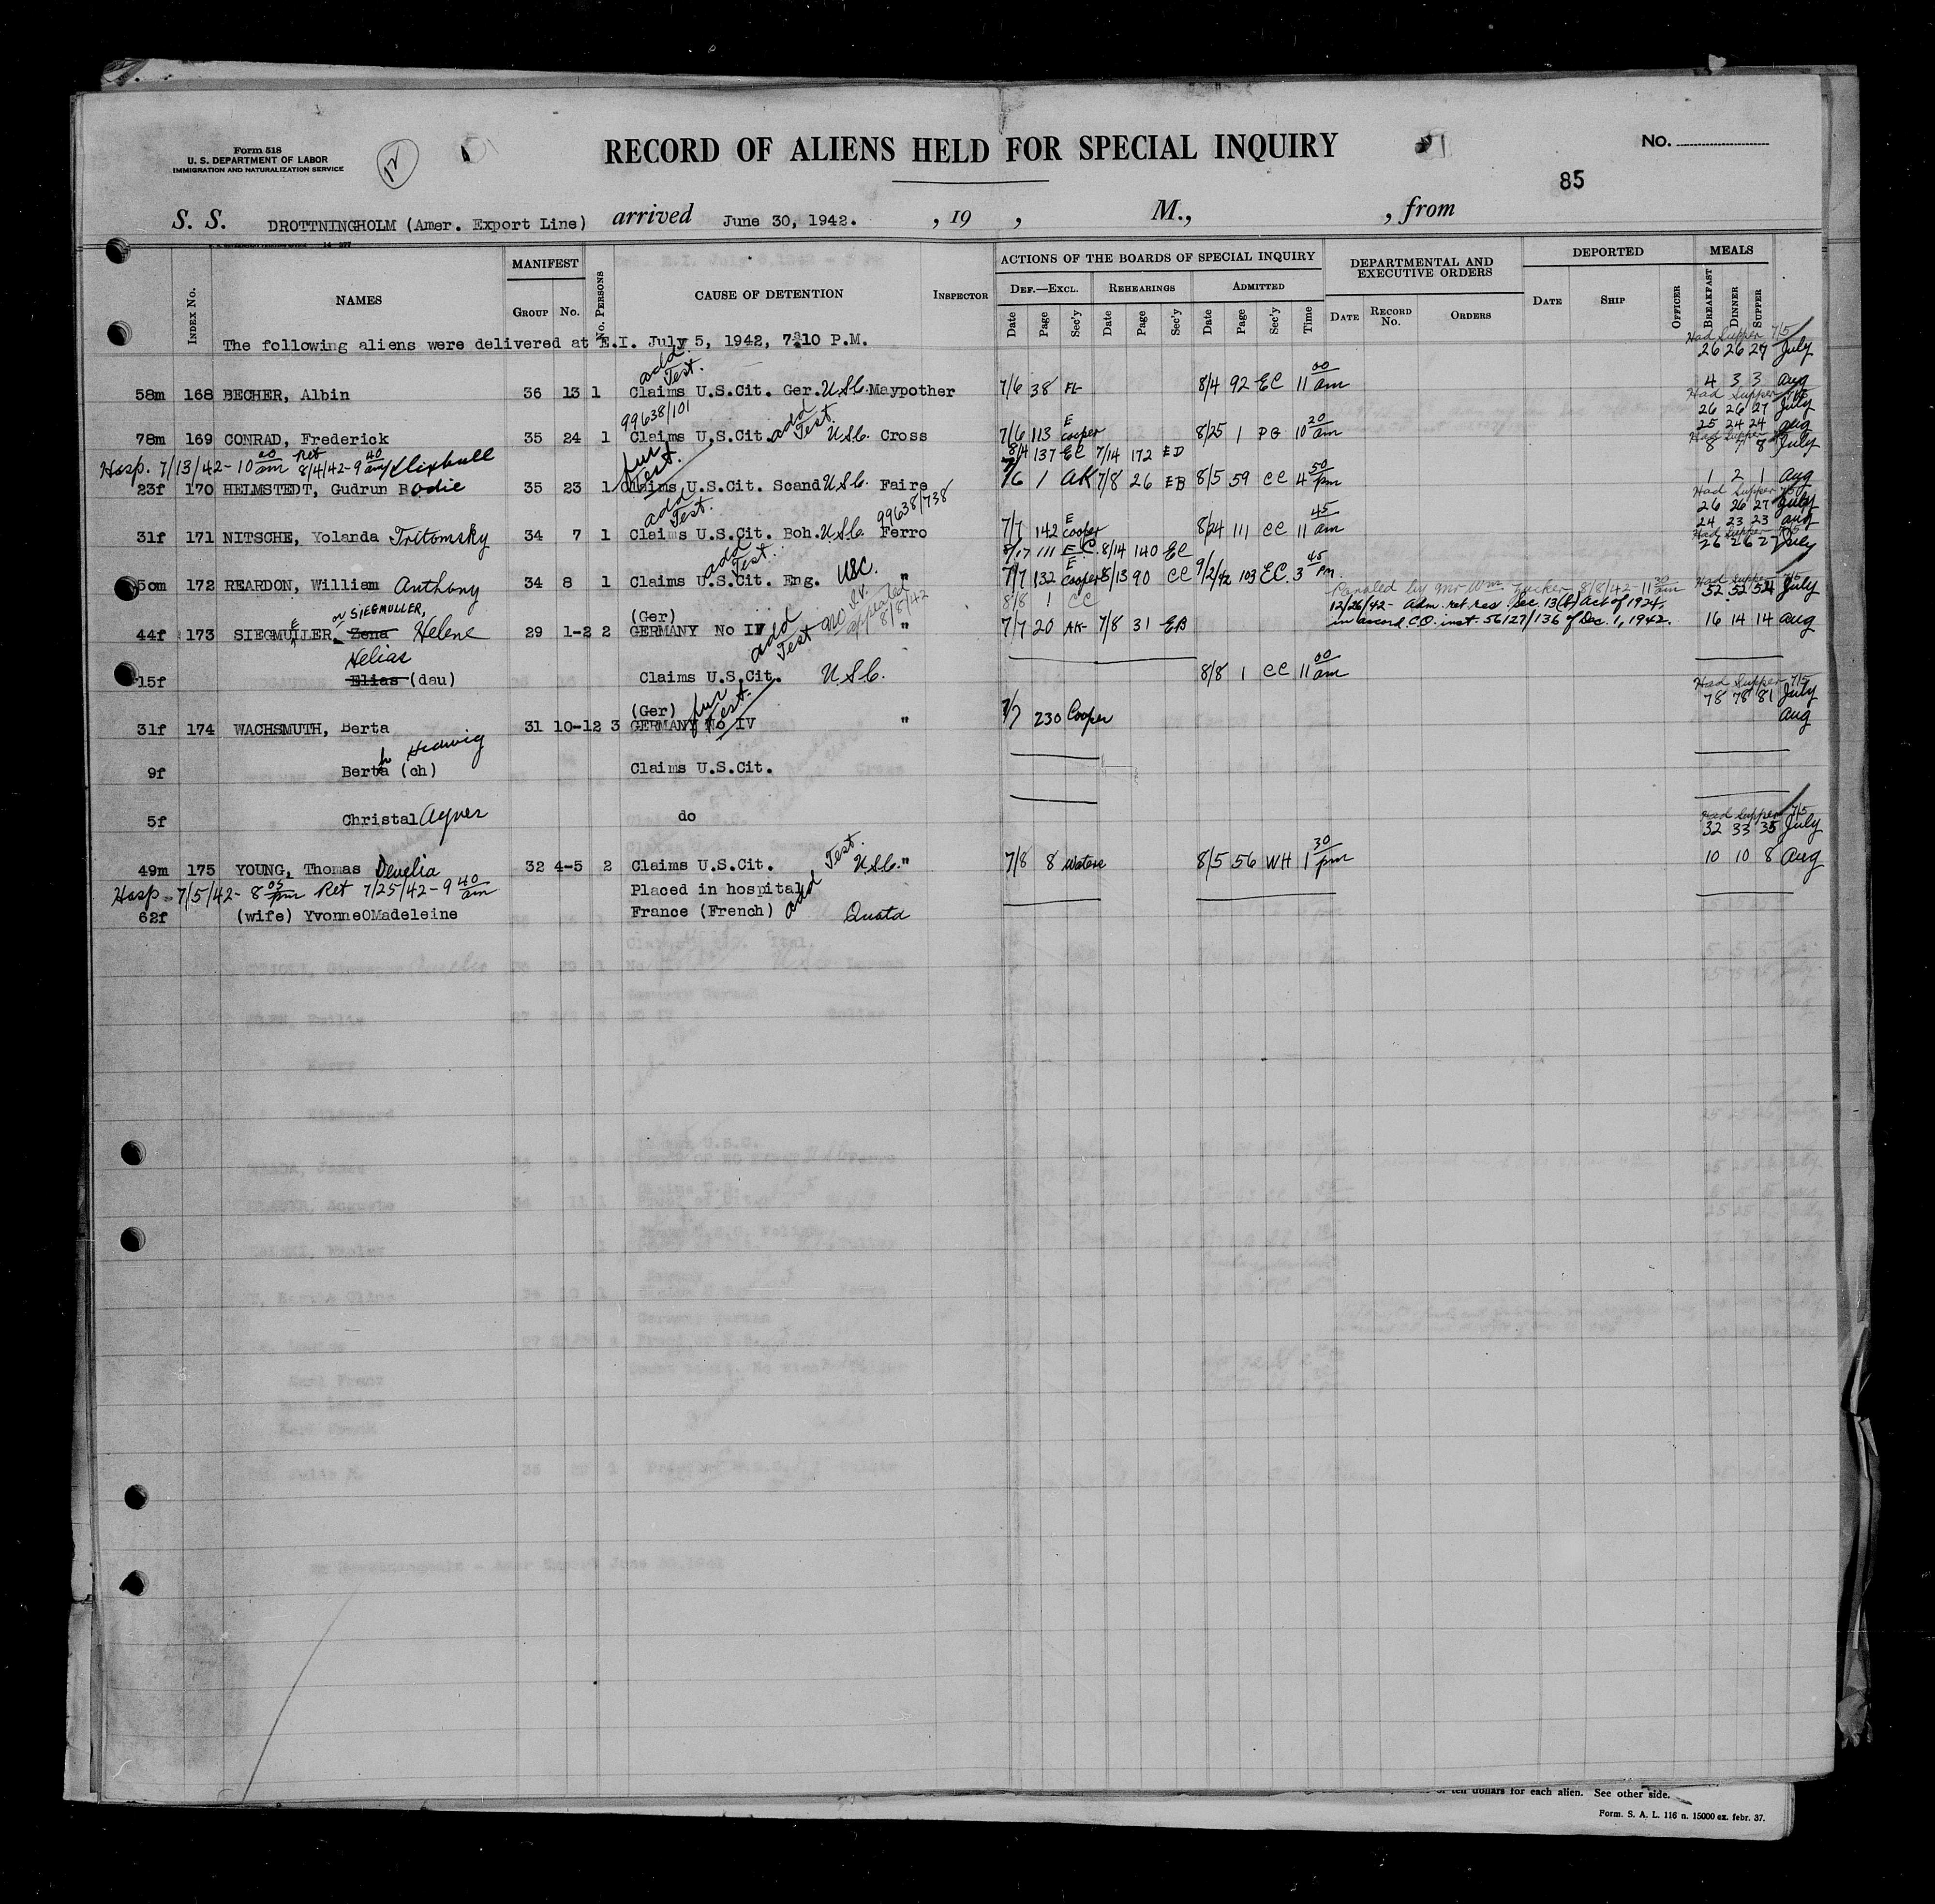 Form 518
U. S. DEPARTMENT OF LABOR
IMMIGRATION AND NATURALIZATION SERVICE
12
RECORD OF ALIENS HELD FOR SPECIAL INQUIRY
No.
85
S. S. DROTTNINGHOLM (Amer. Export Line) arrived June 30, 1942. , 19 , M., , from
INDEX No. NAMES MANIFEST GROUP No. No. PERSONS CAUSE OF DETENTION INSPECTOR
ACTIONS OF THE BOARDS OF SPECIAL INQUIRY DEF.—EXCL. Date Page Sec'y REHEARINGS Date Page Sec'y ADMITTED Date Page Sec'y Time
DEPARTMENTAL AND EXECUTIVE ORDERS DATE RECORD No. ORDERS
DEPORTED DATE SHIP OFFICER MEALS BREAKFAST DINNER SUPPER
The following aliens were delivered at E.I. July 5, 1942, 7:10 P.M.
Had Supper 7/5
26 26 27 July
add Test.
58m 168 BECHER, Albin 36 13 1 Claims U.S.Cit. Ger. USC. Maypother 7/6 38 FL 8/4 92 EC 11 00 am 4 3 3 aug
Had Supper 7/5
99638/101 26 26 27 July
78m 169 CONRAD, Frederick 35 24 1 Claims U.S.Cit. add Test. USC. Cross 7/6 113 E Cooper 8/25 1 PG 10 20 am 25 24 24 aug
Had Supper
Hosp. 7/13/42- 10 00 am Ret 8/4/42-9 40 am fur Test. 8/4 137 EC 7/14 172 ED 8 7 8 July
23f 170 HELMSTEDT, Gudrun Bodie 35 23 1 Claims U.S.Cit. Scand USC. Faire 7/6 1 AK 7/8 26 EB 8/5 59 CC 4 50 pm 1 2 1 aug
Had Supper 7/5
add Test. 99638/738 26 26 27 July
31f 171 NITSCHE, Yolanda Tritomsky 34 7 1 Claims U.S.Cit. Boh. USC. Ferro 7/7 142 E Cooper 8/24 111 CC 11 45 am 24 23 23 aug
Had Supper 7/5
add Test. 8/17 111 E.C. 8/14 140 EC 26 26 27 July
50m 172 REARDON, William Anthony 34 8 1 Claims U.S.Cit. Eng. USC. " 7/7 132 E Cooper 8/13 90 CC 9/2/42 103 EC. 3 45 pm.
or SIEGMULLER, (Ger) appealed 8/8/42 8/8 1 CC 8/8/42-11 30 am Had Supper 7/5 52 52 54 July
12/26/42- Adm. ret. res. Sec. 13(b) Act of 1924.
44f 173 SIEGMUELLER, Zena Helene 29 1-2 2 GERMANY No IV add Test " 7/7 20 AK- 7/8 31 EB in accord. C.O. inst. 56127/136 of Dec. 1, 1942. 16 14 14 aug
Helias
15f Elias (dau) Claims U.S.Cit. USC. 8/8 1 CC 11 00 am
Had Supper 7/5
(Ger) fur Test. 78 78 81 July
31f 174 WACHSMUTH, Berta 31 10-12 3 GERMANY No IV " 7/7 230 Cooper aug
9f Berta h Hedwig (ch) Claims U.S.Cit.
5f Christal Agner do
Had Supper 7/5
32 33 35 July
49m 175 YOUNG, Thomas 32 4-5 2 Claims U.S.Cit. Test. USC. " 7/8 8 Waters 8/5 56 WH 1 30 pm 10 10 8 aug
Hosp- 7/5/42- 8 05 pm Ret 7/25/42-9 40 am Placed in hospital add
62f (wife) YvonneOMadeleine France (French) Quota
of ten dollars for each alien. See other side.
Form. S. A. L. 116 n. 15000 ex. febr. 37.